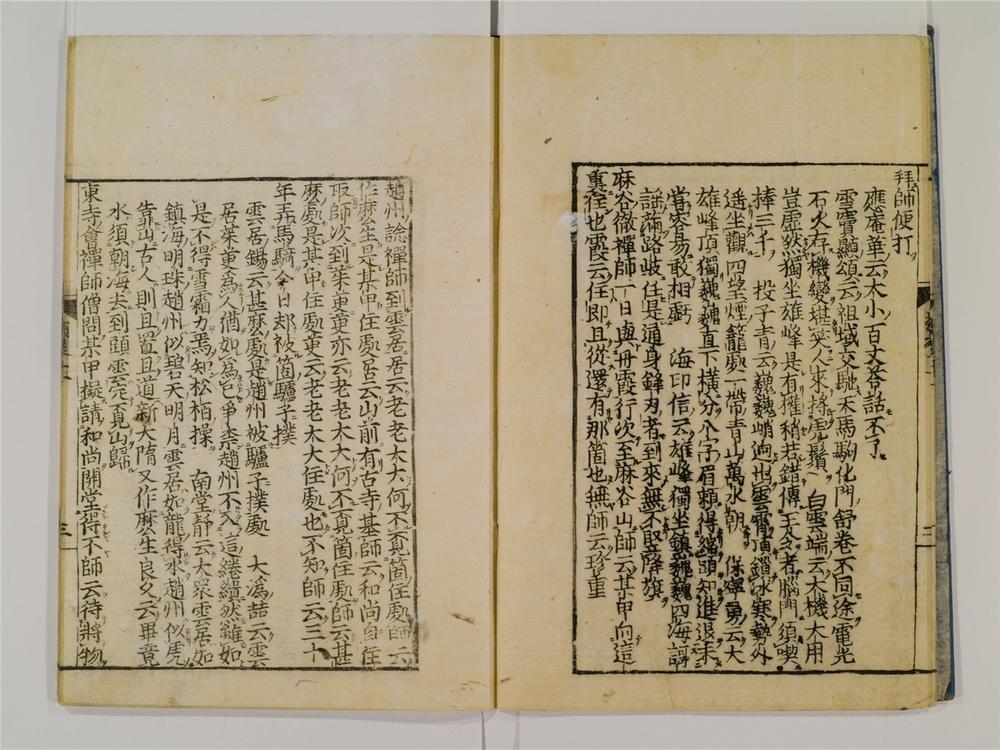 拜師便打
應庵華云大小百丈荅話不了
雪竇顯頌云祖域交馳天馬駒化門舒卷不同途電光
石火存機變堪笑人來捋虎鬚　白雲端云大機大用
豈虛然獨坐雄峰是有權稍若錯傳王令者腦門須喫
棒三千　投子青云巍巍峭迥出雲霄頂鎖冰寒勢外
遙坐觀四望煙籠處一帶青山萬水朝　保寧勇云大
雄峰頂獨巍巍直下橫分八字眉賴得縮頭知進退未
甞容易敢相虧　海印信云雄峰獨坐鎮巍巍四海謌
謡滿路歧任是通身鋒刃者到來無不竪降旗
麻谷徹禪師一日與丹霞行次至麻谷山師云某甲向這
裏住也霞云住即且從還有那箇也無師云珍重
趙州諗禪師到雲居居云老老大大何不覓箇住處師云
作麽生是某甲住處居云山前有古寺基師云和尚自住
取師次到茱萸萸亦云老老大大何不覓箇住處師云甚
麽處是某甲住處萸云老老大大住處也不知師云三十
年弄馬騎今日却被箇驢子撲
雲居錫云甚麽處是趙州被驢子撲處　大溈喆云雲
居茱萸爲人猶如爲己爭柰趙州不入這繾繢然雖如
是不得雪霜力焉知松栢操　南堂靜云大衆雲居如
鎮海明珠趙州似碧天明月雲居如龍得水趙州似虎
靠山古人則且置且道新大隋又作麽生良久云畢竟
水須朝海去到頭雲定覓山歸
東寺會禪師僧問某甲擬請和尚開堂得不師云待將物